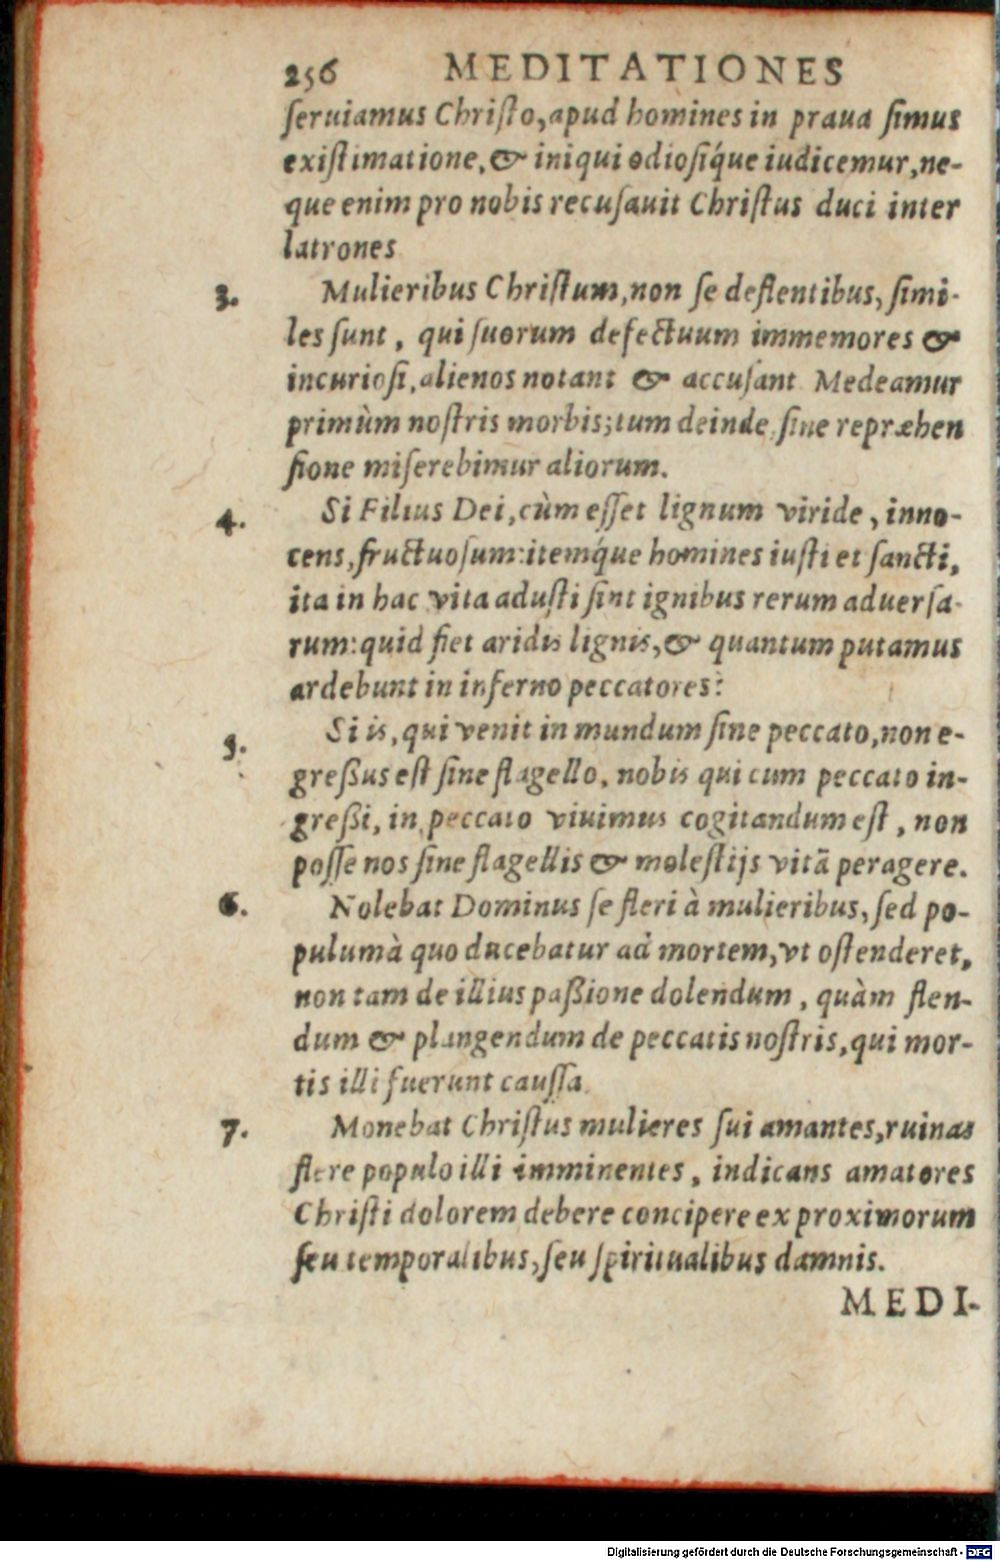 256 MEDITATIONES
ſeruiamus Chriſto, apud homines in praua ſimus
exiſtimatione, & iniqui odioſíque iudicemur, ne-
que enim pro nobis recuſauit Chriſtus duci inter
latrones
3. Mulieribus Chriſtum, non ſe deflentibus, ſimi-
les ſunt, qui ſuorum defectuum immemores &
incurioſi, alienos notant & accuſant Medeamur
primùm noſtris morbis; tum deinde ſine repræhen
ſione miſerebimur aliorum.
4. Si Filius Dei, cùm eſſet lignum viride, inno-
cens, fructuoſum: itemq́ue homines iuſti et ſancti,
ita in hac vita aduſti ſint ignibus rerum aduerſa-
rum: quid fiet aridis lignis, & quantum putamus
ardebunt in inferno peccatores?
5. Si is, qui venit in mundum ſine peccato, non e-
greßus eſt ſine flagello, nobis qui cum peccato in-
greßi, in peccato viuimus cogitandum eſt, non
poſſe nos ſine flagellis & moleſtijs vitã peragere.
6. Nolebat Dominus ſe fleri à mulieribus, ſed po-
pulum à quo ducebatur ad mortem, vt oſtenderet,
non tam de illius paßione dolendum, quàm flen-
dum & plangendum de peccatis noſtris, qui mor-
tis illi fuerunt cauſſa.
7. Monebat Chriſtus mulieres ſui amantes, ruinas
flere populo illi imminentes, indicans amatores
Chriſti dolorem debere concipere ex proximorum
ſeu temporalibus, ſeu ſpiritualibus damnis.
MEDI-
Digitalisierung gefördert durch die Deutsche Forschungsgemeinschaft - DFG